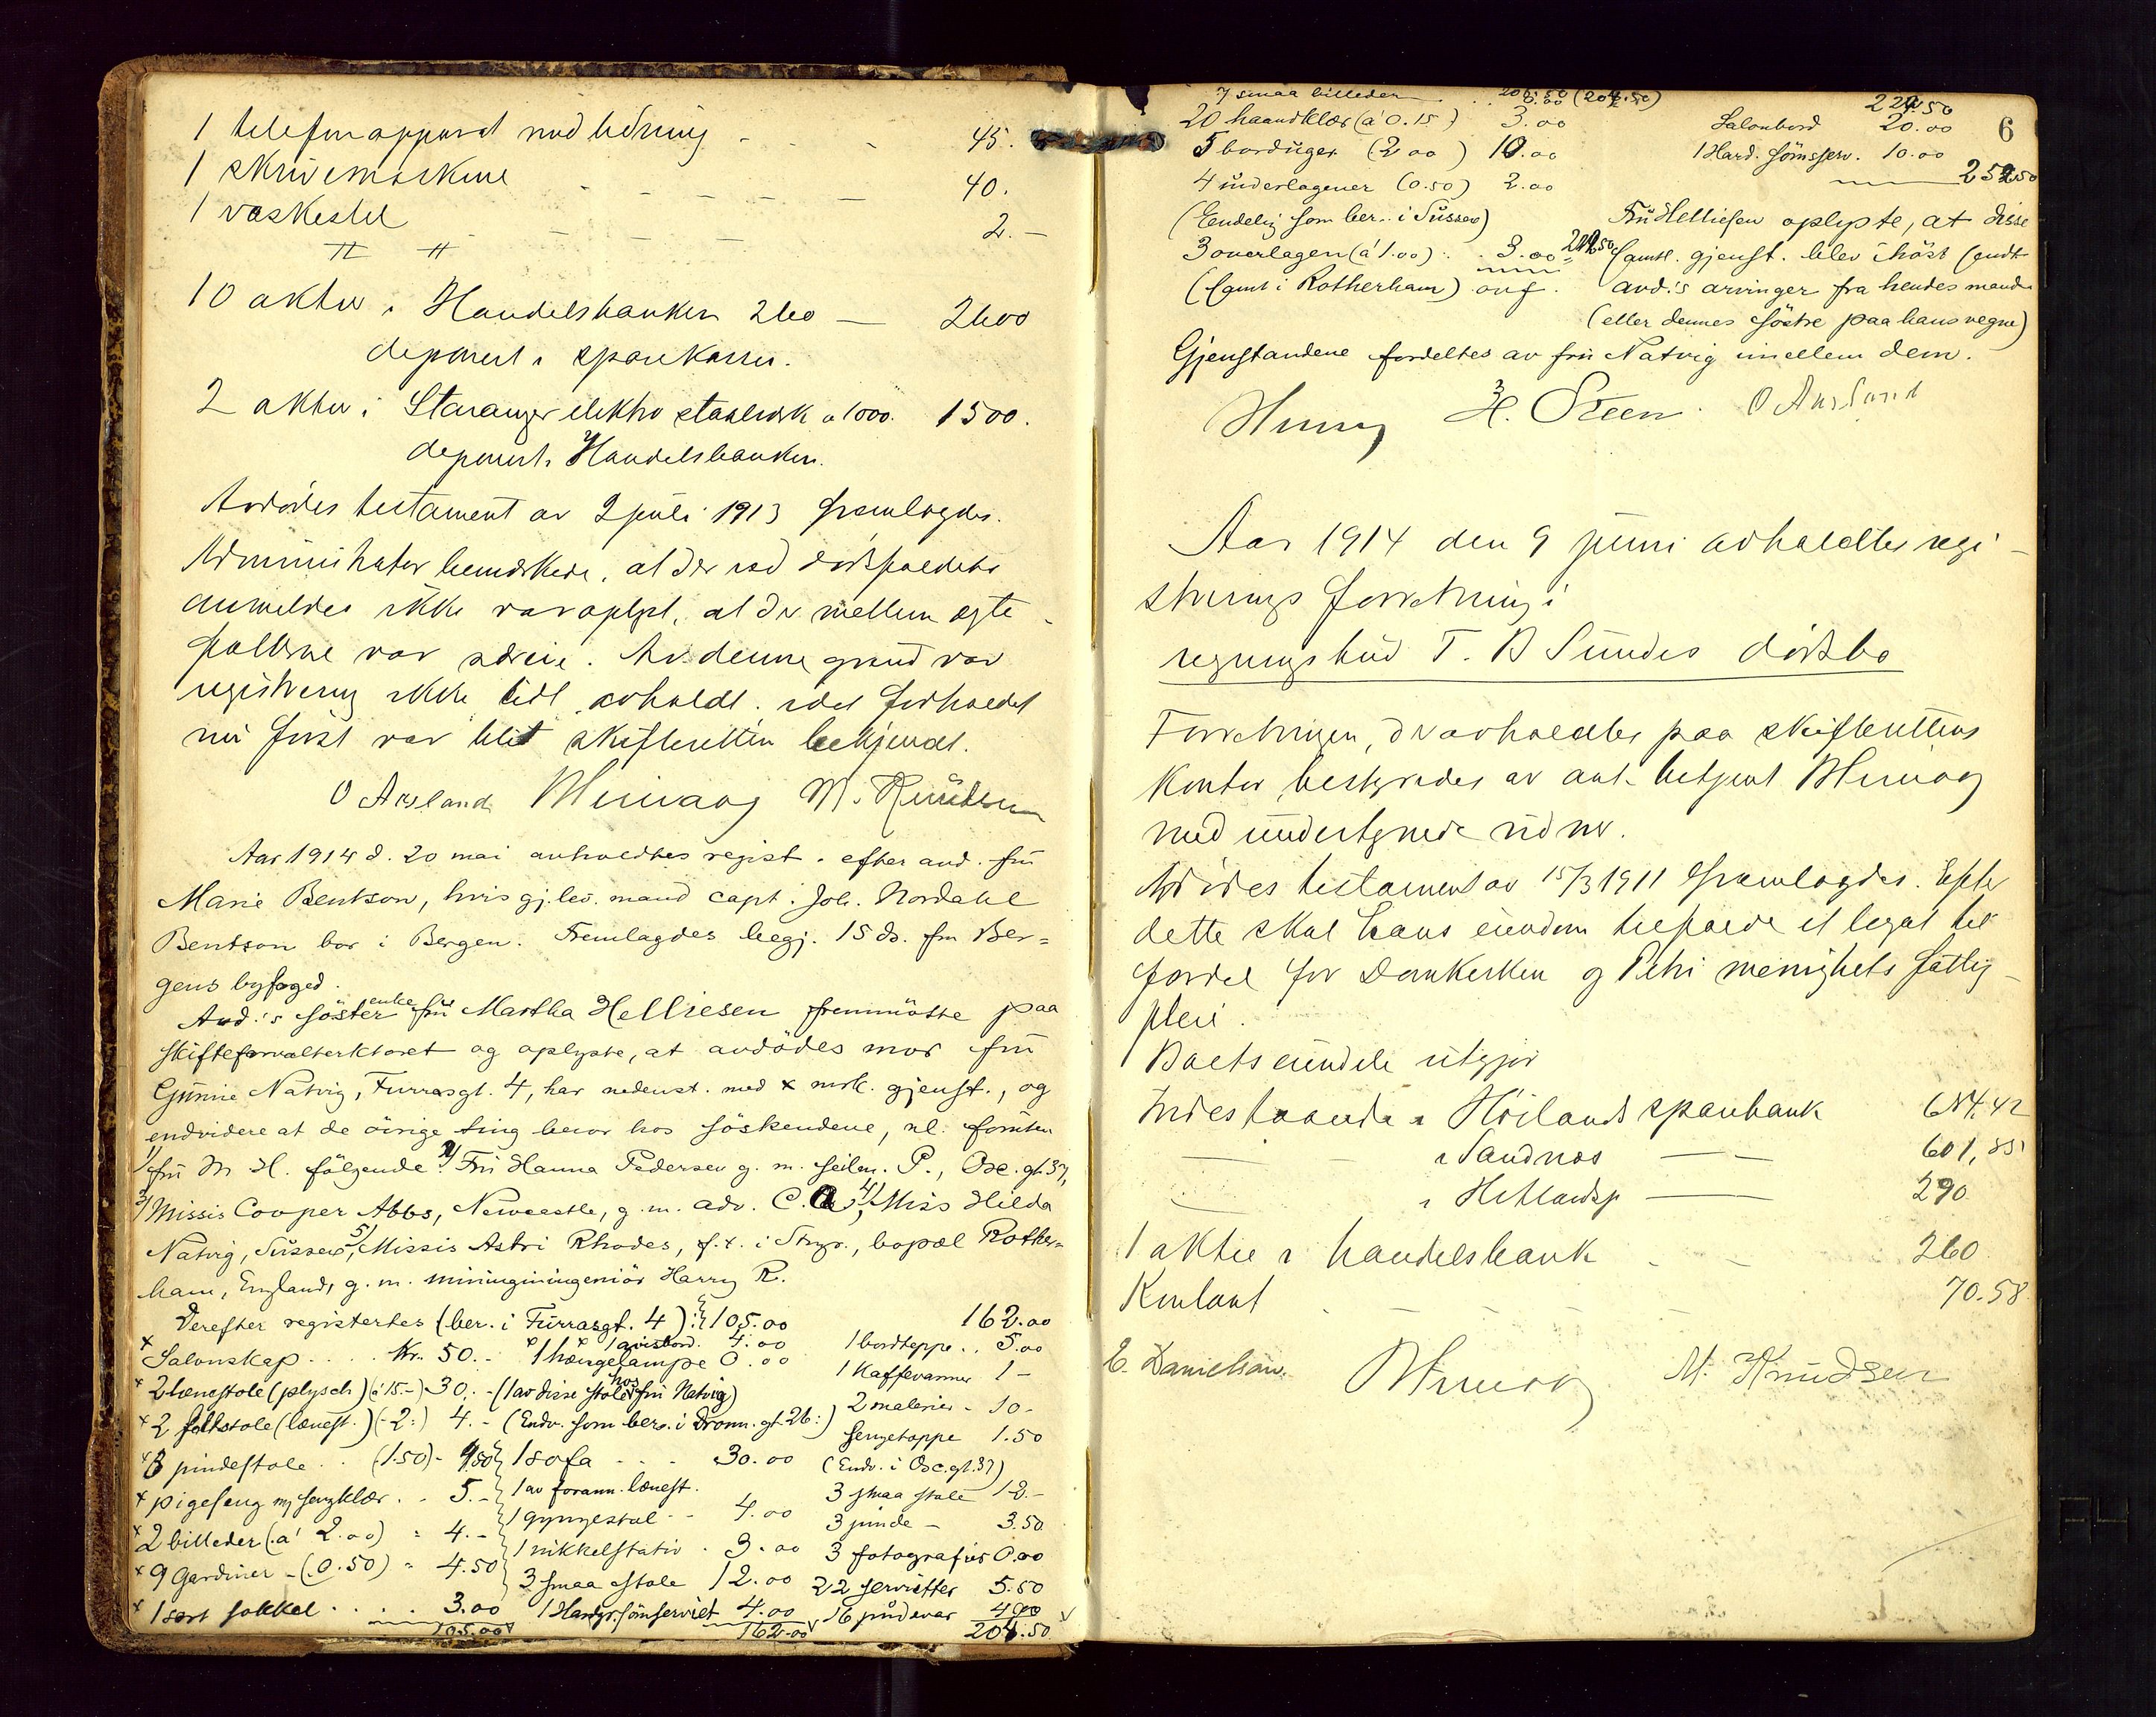 1 telefonapparat med ledning - - - 45.
1 skrivemaskine - - - - 40.
1 vaskestel - - - - 2.-
10 aktier i Handelsbanken 260 — 2600
deponert i sparekassen.
2 aktier i Stavanger elektro staalverk a 1000. 1500.
deponert i Handelsbanken.
Avdødes testament av 2 juli 1913 fremlagdes.
Administrator bemerkede, at der ved dødsfaldets
anmeldes ikke var oplyst, at der mellem egte
fællerne var særeie. Av denne grund var
registrering ikke tidl. avholdt. idet forholdet
nu først var blit skifteretten bekjendt.
O Aasland M. Knudsen
Aar 1914 d. 20 mai avholdtes regist. efter avd. frü
Marie Bentson, hvis gj.lev. mand capt. Joh. Nordahl
Bentson bor i Bergen. Fremlagdes begj. 15 ds. fra Ber=
gens byfoged.
Avd.'s söster enke frü Martha Helliesen fremmötte paa
skifteforvalterktoret og oplyste, at avdödes mor frü
Gunnie Natvig, Furrasgt. 4, har nedenst. med x mrk. gjenst., og
endvidere at de övrige ting beror hos söskendene, nl. foruten
1/ frü M. H. fölgende: 2/ Frü Hanna Pedersen g. m. seilm. P., Osc. gt. 37,
3/ Missis Cooper Abbs, Newcastle, g. m. adv. C. A., 4/ Miss Hilda
Natvig, Süssex, 5/ Missis Astri Rhodes, f. t. i Stvgr., bopæl Rother=
ham, England, g. m. miningingeniör Harry R.
Derefter registertes (ber. i Furrasgt. 4): 105.00 162.00
x Salonskap .... Kr. 50.- x 1 hængelampe 0.00 x 1 avisbord. 4.00 1 bordteppe.. 5.00
x 2 lænestole (plysch) (à 15.-) 30.- (1 av disse stole hos frü Natvig) 1 Kaffevarmer 1 -
x 2 feltstole (lænest.) (2:) 4.- (Endv. som ber. i Dronn. gt. 26:) 2 malerier - 10 -
x 3 pindestole .. (1.50)- 4.50 1 sofa - - - 30.00 Sengeteppe 1.50
x pigeseng m/ sengklær .. 5.- 1 av forann. lænest. (Endv. i Osc. gt. 37)
x 2 billeder (à 2.00) = 4.- 1 gyngestol - - 4.00 3 smaa stole 12.-
x 9 Gardiner - (0.50) = 4.50 1 nikkelstativ . 3.00 3 pinde - 3.50
x 1 sort sokkel ..... 3.00 3 smaa stole 12.00 3 fotografier 0.00
105.00 1 Hardgr. sömserviet 4.00 22 servietter 5.50
162.00 16 püdevar 4.00
204.50
6
7 smaa billeder .. 0.00 (204.50)
20 haandklær (à 0.15) 3.00
5 borduger (2 00) 10.00
4 underlagener (0.50) 2.00
(Endelig som ber. i Süssex)
3 overlagen (à 1.00) . . 3.00
(Samt i Rotherham)
Salonbord 20.00
1 Hard. sömserv. 10.00
Frü Helliesen oplyste, at disse
samtl. gjenst. blev i höst sendt
avd.'s arvinger fra hendes mand
(eller dennes söstre paa hans vegne)
Gjenstandene fordeltes av frü Natvig imellem dem.
H. Steen. O Aasland
Aar 1914 den 9 juni avholdtes regi-
strerings forretning i
regningsbud T. B Sundes dødsbo
Forretningen, der avholdtes paa skifterettens
kontor, bestyredes av aut. betjent
med undertegnede vidner.
Avdødes testament av 15/3 1911 fremlagdes. Efter
dette skal hans eiendom tilfalde et legat til
fordel for Domkirken og Petri menighets fattig-
pleie.
Boets eiendele utgjør
Indestaaende i Høilands sparebank 614.42
— i Sandnes — 601,85
— i Hetlandsp — 290
1 aktie i handelsbank - - 260
Kontant - - - 70.58
E. Danielsen. M. Knudsen